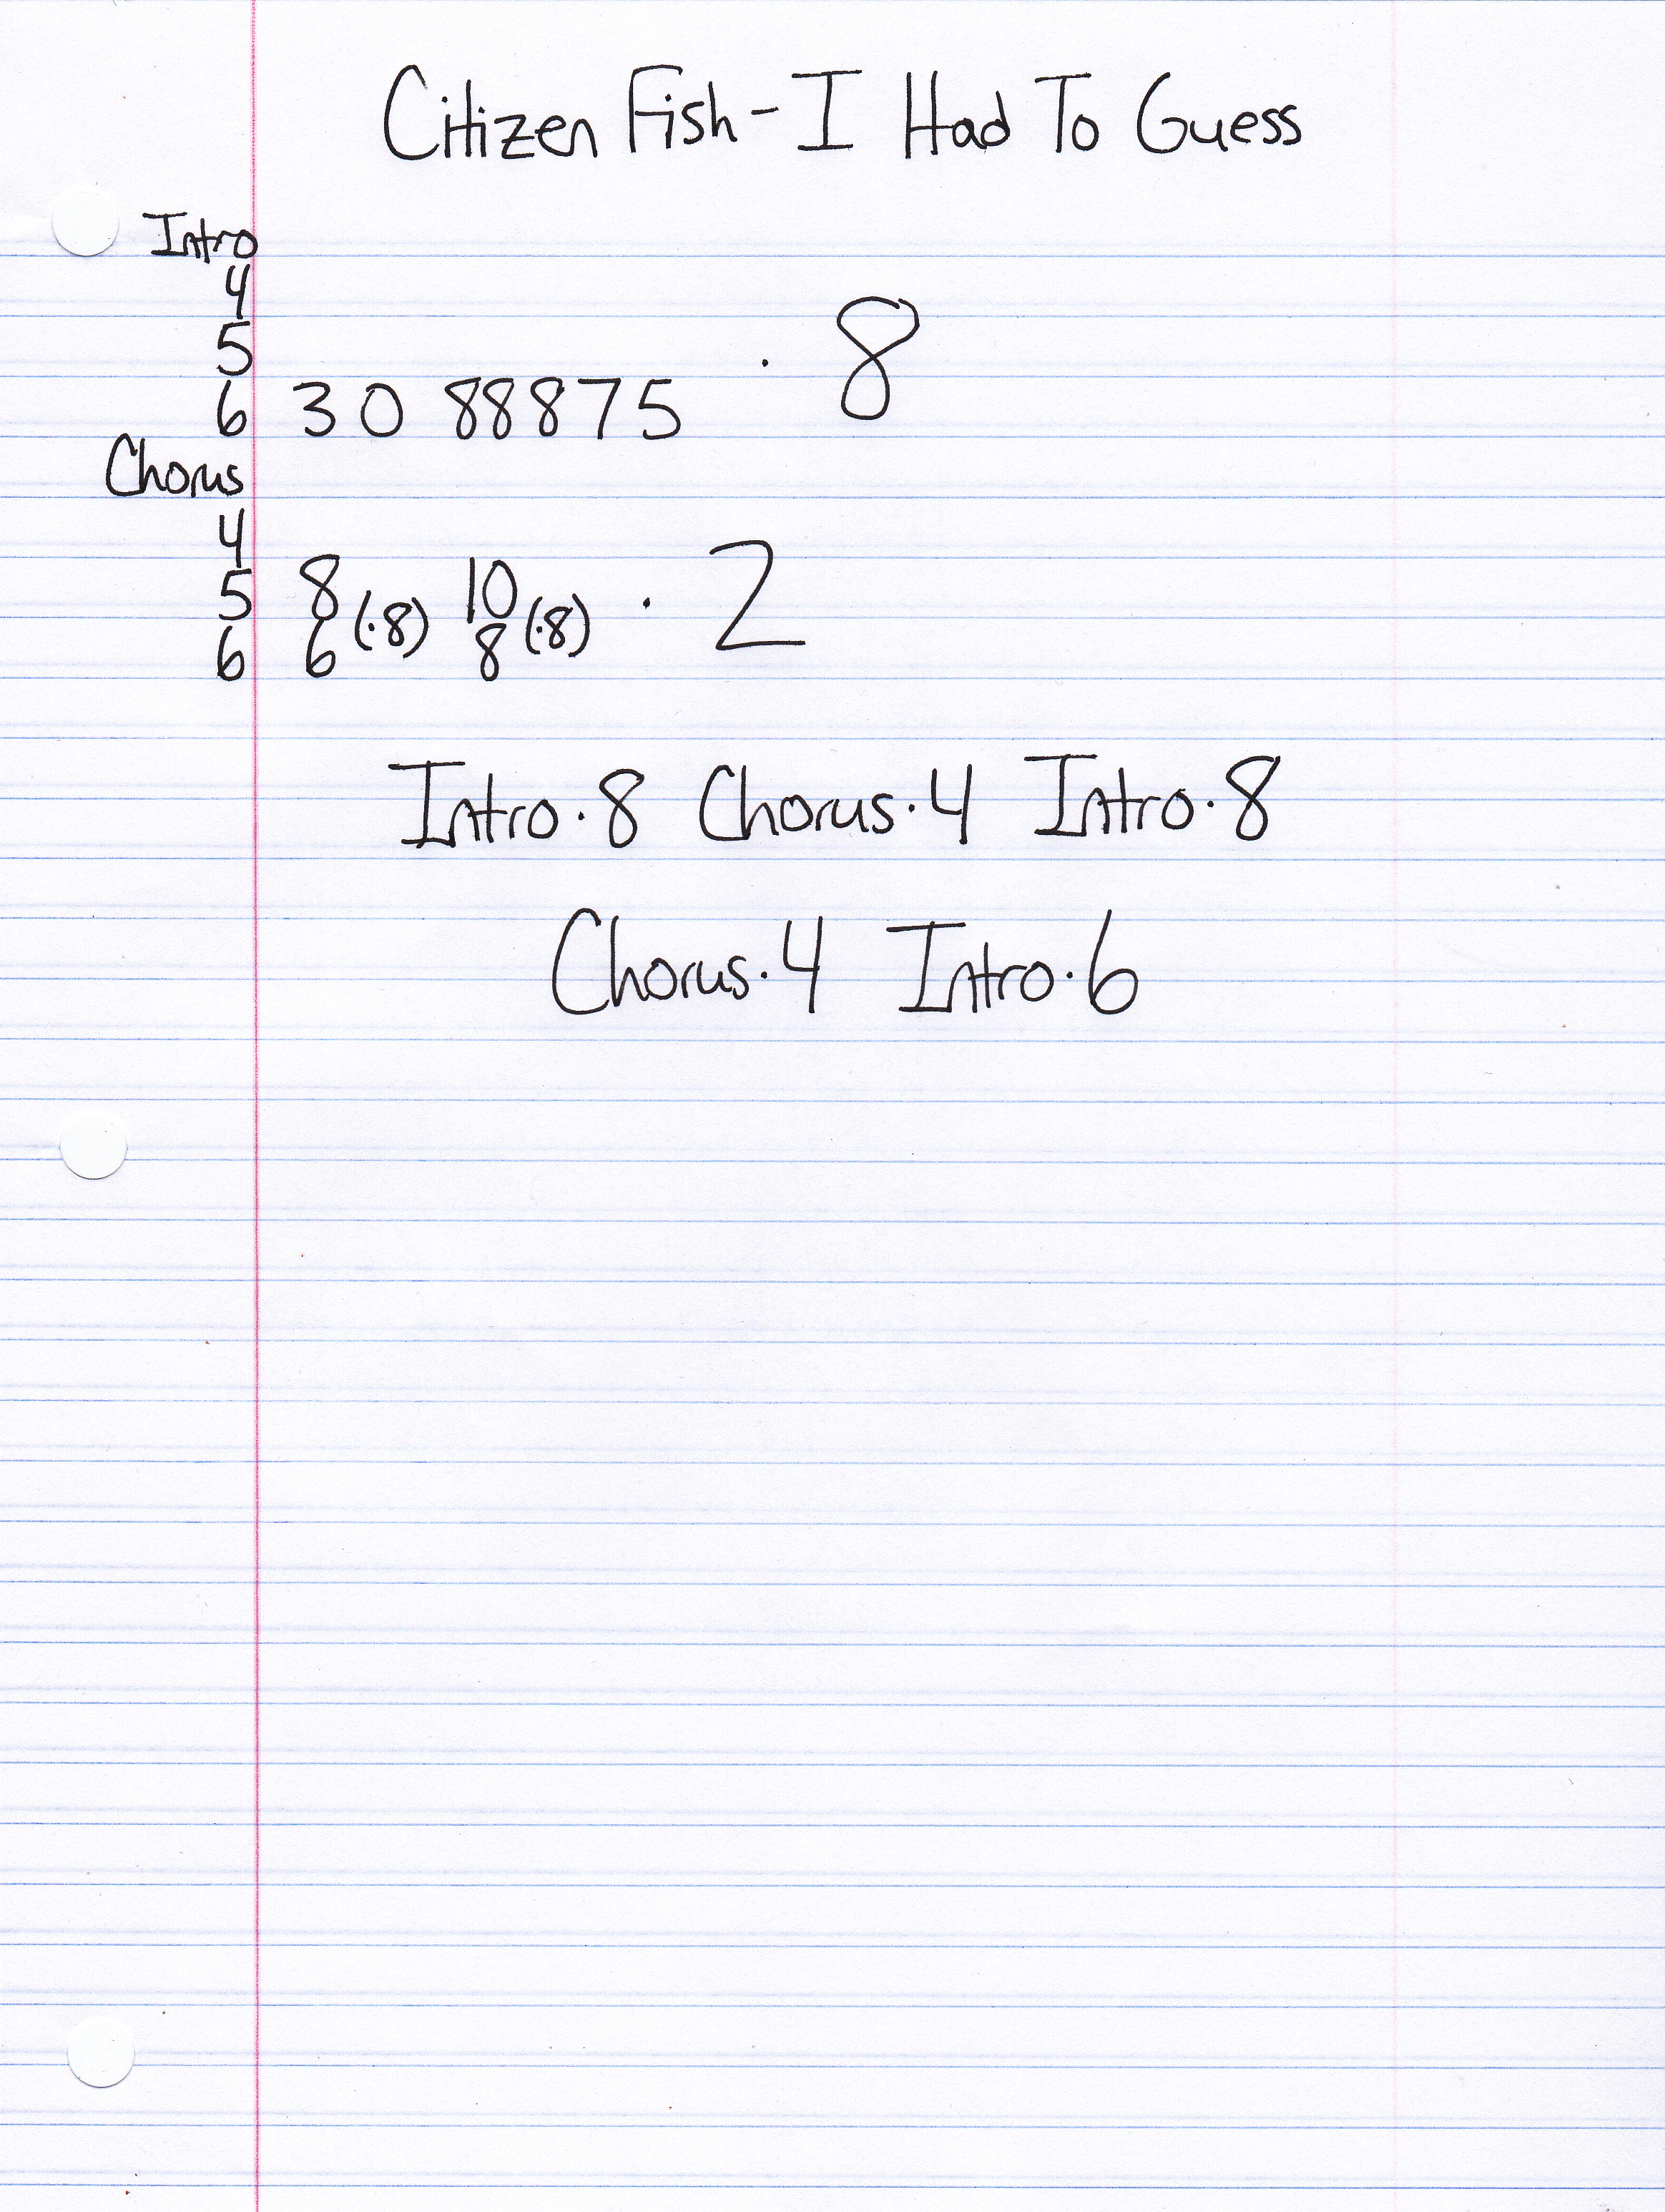 Citizen Fish - I Had To Guess
Intro
4
5
6 3 0 88875 · 8
Chorus
4
5 8 (·8) 10 (·8) · 2
6 6 8
Intro·8 Chorus·4 Intro·8
Chorus·4 Intro·6